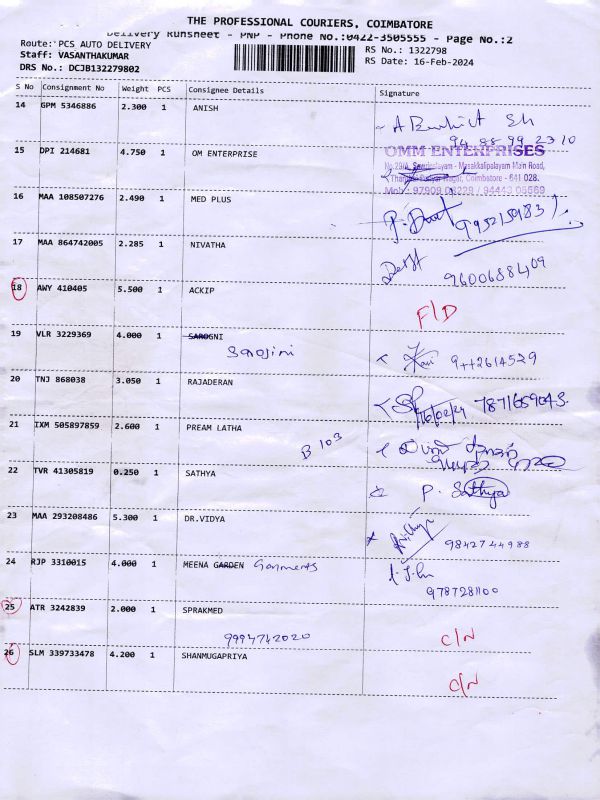 THE PROFESSIONAL COURIERS, COIMBATORE
Delivery Runsheet - PNP - Phone No.:0422-3505555 - Page No.:2
Route: PCS AUTO DELIVERY
RS No.: 1322798
Staff: VASANTHAKUMAR
RS Date: 16-Feb-2024
DRS No.: DCJB132279802
S No Consignment No Weight PCS Consignee Details Signature
14 GPM 5346886 2.300 1 ANISH
15 DPI 214681 4.750 1 OM ENTERPRISE
OMM ENTERPRISES
16 MAA 108507276 2.490 1 MED PLUS
17 MAA 864742005 2.285 1 NIVATHA
9600688409
18 AWY 410405 5.500 1 ACKIP
F/D
19 VLR 3229369 4.000 1 SAROGNI
Sarojini
20 TNJ 868038 3.050 1 RAJADERAN
16/02/24 7871659043
21 IXM 505897859 2.600 1 PREAM LATHA
B 103
22 TVR 41305819 0.250 1 SATHYA
P. Sathya
23 MAA 293208486 5.300 1 DR.VIDYA
9842744988
24 RJP 3310015 4.000 1 MEENA GARDEN Garments
9787281100
25 ATR 3242839 2.000 1 SPRAKMED
9994742020
C/N
26 SLM 339733478 4.200 1 SHANMUGAPRIYA
C/N